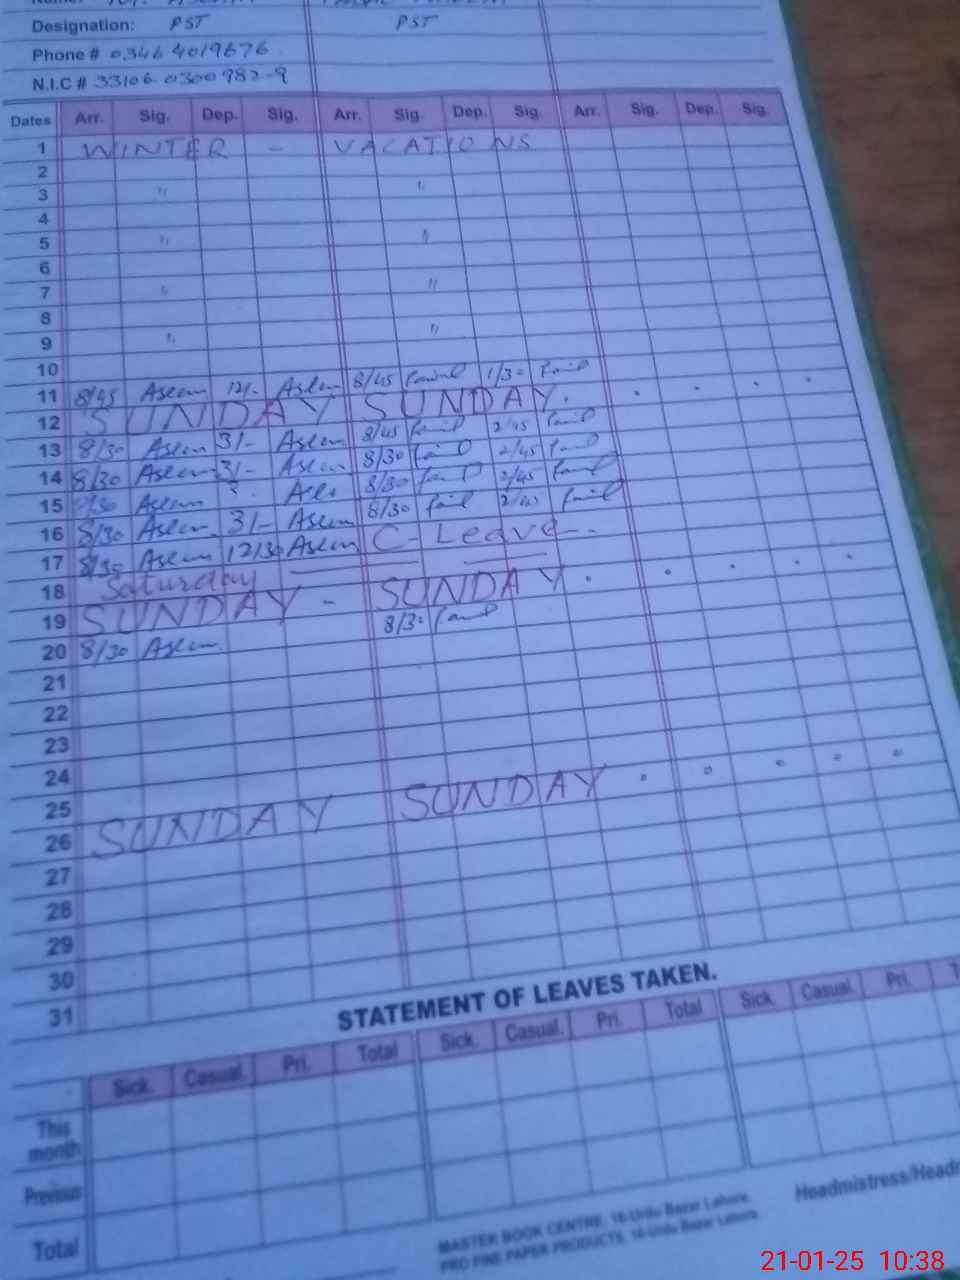 Designation: PST PST
Phone # 0346 4019676
N.I.C # 33106-0300982-9
Dates Arr. Sig. Dep. Sig. Arr. Sig. Dep. Sig. Arr. Sig. Dep. Sig.
1 WINTER - VACATIONS
2
3 " "
4
5 " "
6
7 " "
8
9 " "
10
11 8/45 Aslam 12/- Aslam 8/45 1/30
12 SUNDAY SUNDAY.
13 8/30 Aslam 3/- Aslam 8/45 2/45
14 8/30 Aslam 3/- Aslam 8/30 2/45
15 8/30 Aslam 8/30 2/45
16 8/30 Aslam 3/- Aslam 8/30 2/45
17 8/30 Aslam 12/30 Aslam C-Leave-.
18 Saturday
19 SUNDAY - SUNDAY.
20 8/30 Aslam 8/30
21
22
23
24
25
26 SUNDAY SUNDAY
27
28
29
30
31
STATEMENT OF LEAVES TAKEN.
Sick. Casual. Pri. Total Sick. Casual. Pri. Total Sick. Casual. Pri.
This month
Previous
Total
MASTER BOOK CENTRE, 16-Urdu Bazar Lahore.
PRO FINE PAPER PRODUCTS, 16-Urdu Bazar Lahore.
21-01-25 10:38